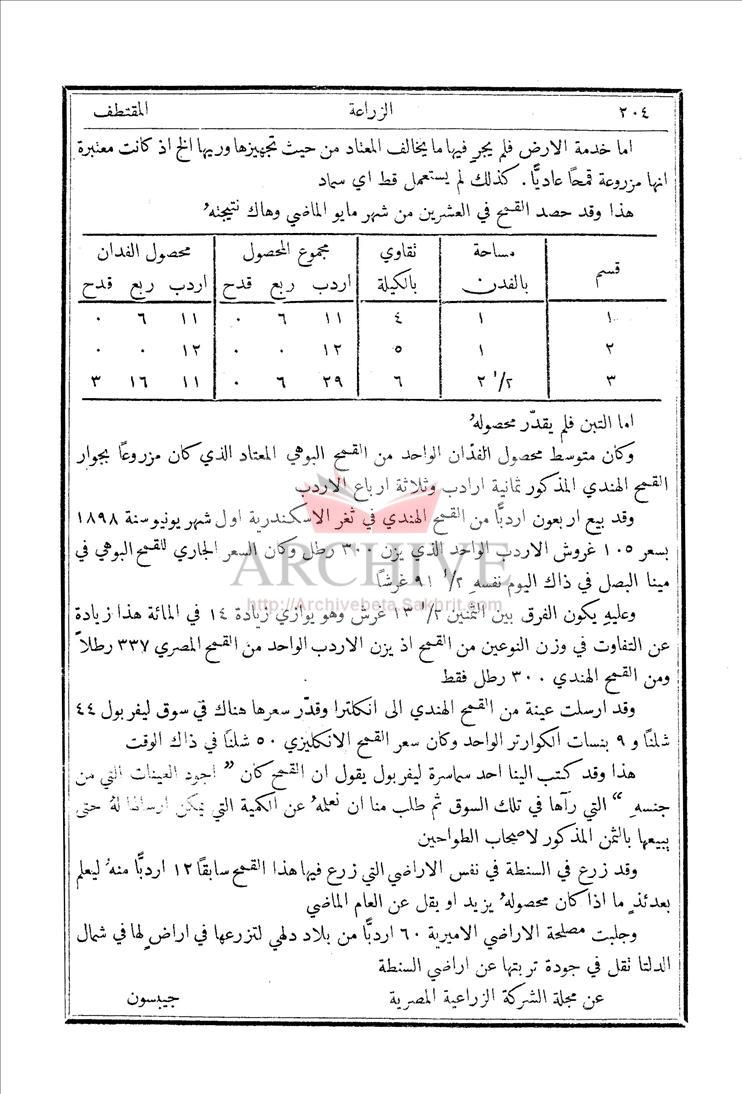 ٢٠٤ الزراعة المقتطف
اما خدمة الارض فلم يجرِ فيها ما يخالف المعتاد من حيث تجهيزها وريها الخ اذ كانت معتبرة
انها مزروعة قمحًا عاديًّا. كذلك لم يستعمل قط اي سماد
هذا وقد حصد القمح في العشرين من شهر مايو الماضي وهاك نتيجتهُ
قسم مساحة بالفدن نقاوي بالكيلة مجموع المحصول محصول الفدان
اردب ربع قدح اردب ربع قدح
١ ١ ٤ ١١ ٦ ٠ ١١ ٦ ٠
٢ ١ ٥ ١٢ ٠ ٠ ١٢ ٠ ٠
٣ ٢ ١/٢ ٦ ٢٩ ٦ ٠ ١١ ١٦ ٣
اما التبن فلم يقدّر محصولهُ
وكان متوسط محصول الفدّان الواحد من القمح البوهي المعتاد الذي كان مزروعًا بجوار
القمح الهندي المذكور ثمانية ارادب وثلاثة ارباع الاردب
وقد بيع اربعون اردبًّا من القمح الهندي في ثغر الاسكندرية اول شهر يونيو سنة ١٨٩٨
بسعر ١٠٥ غروش الاردب الواحد الذي يزن ٣٠٠ رطل وكان السعر الجاري للقمح البوهي في
مينا البصل في ذاك اليوم نفسهِ ٩١ ١/٢ غرشًا
وعليهِ يكون الفرق بين الثمنين ١٣ ١/٢ غرش وهو يوازي زيادة ١٤ في المائة هذا زيادة
عن التفاوت في وزن النوعين من القمح اذ يزن الاردب الواحد من القمح المصري ٣٣٧ رطلاً
ومن القمح الهندي ٣٠٠ رطل فقط
وقد ارسلت عينة من القمح الهندي الى انكلترا وقدّر سعرها هناك في سوق ليفربول ٤٤
شلنًا و ٩ بنسات الكوارتر الواحد وكان سعر القمح الانكليزي ٥٠ شلنًا في ذاك الوقت
هذا وقد كتب الينا احد سماسرة ليفربول يقول ان القمح كان " اجود العينات التي من
جنسهِ " التي رآها في تلك السوق ثم طلب منا ان نعلمهُ عن الكمية التي يمكن ارسالها لهُ حتى
يبيعها بالثمن المذكور لاصحاب الطواحين
وقد زرع في السنطة في نفس الاراضي التي زرع فيها هذا القمح سابقًا ١٢ اردبًّا منهُ ليعلم
بعدئذٍ ما اذا كان محصولهُ يزيد او يقل عن العام الماضي
وجلبت مصلحة الاراضي الاميرية ٦٠ اردبًّا من بلاد دلهي لتزرعها في اراضٍ لها في شمال
الدلتا نقل في جودة تربتها عن اراضي السنطة
عن مجلة الشركة الزراعية المصرية جيبسون
ARCHIVE
http://Archivebeta.Sakhrit.com